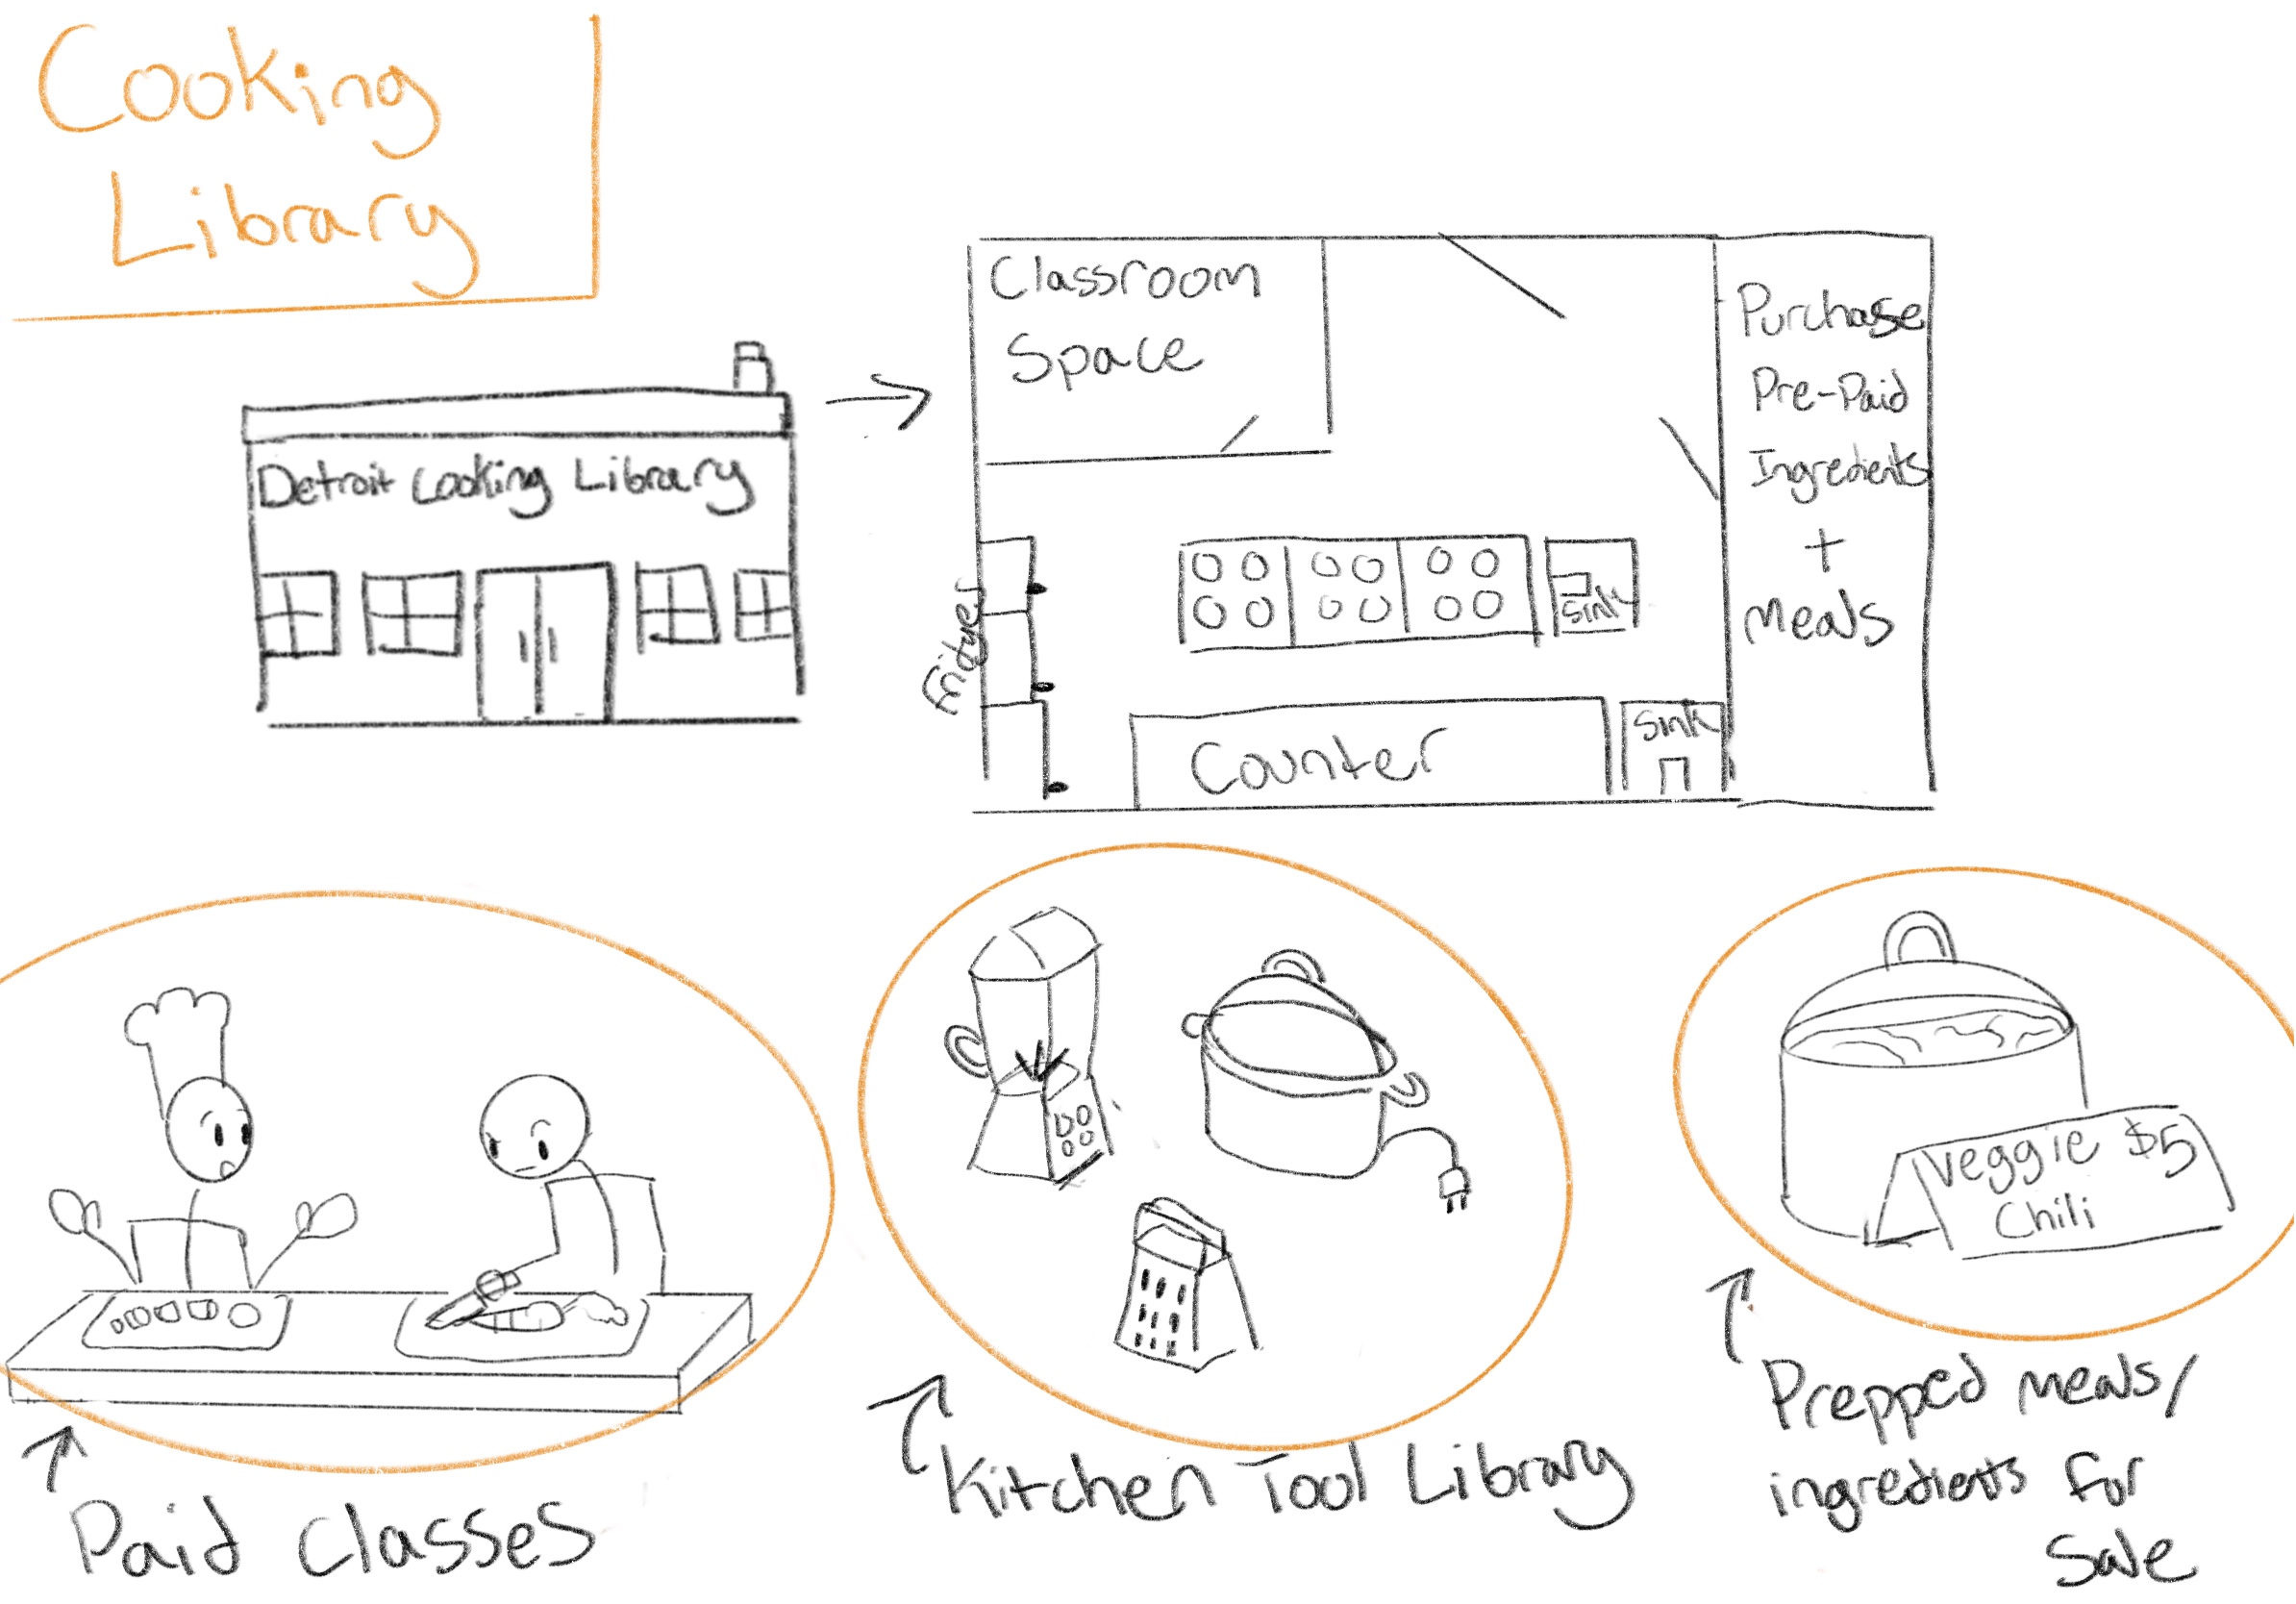 Cooking
Library
Detroit Cooking Library
Classroom
Space
Purchase
Pre-Paid
Ingredients
+
Meals
Fridges
Sink
Counter
Sink
Veggie $5
Chili
Paid Classes
Kitchen Tool Library
Prepped meals/
ingredients for
Sale